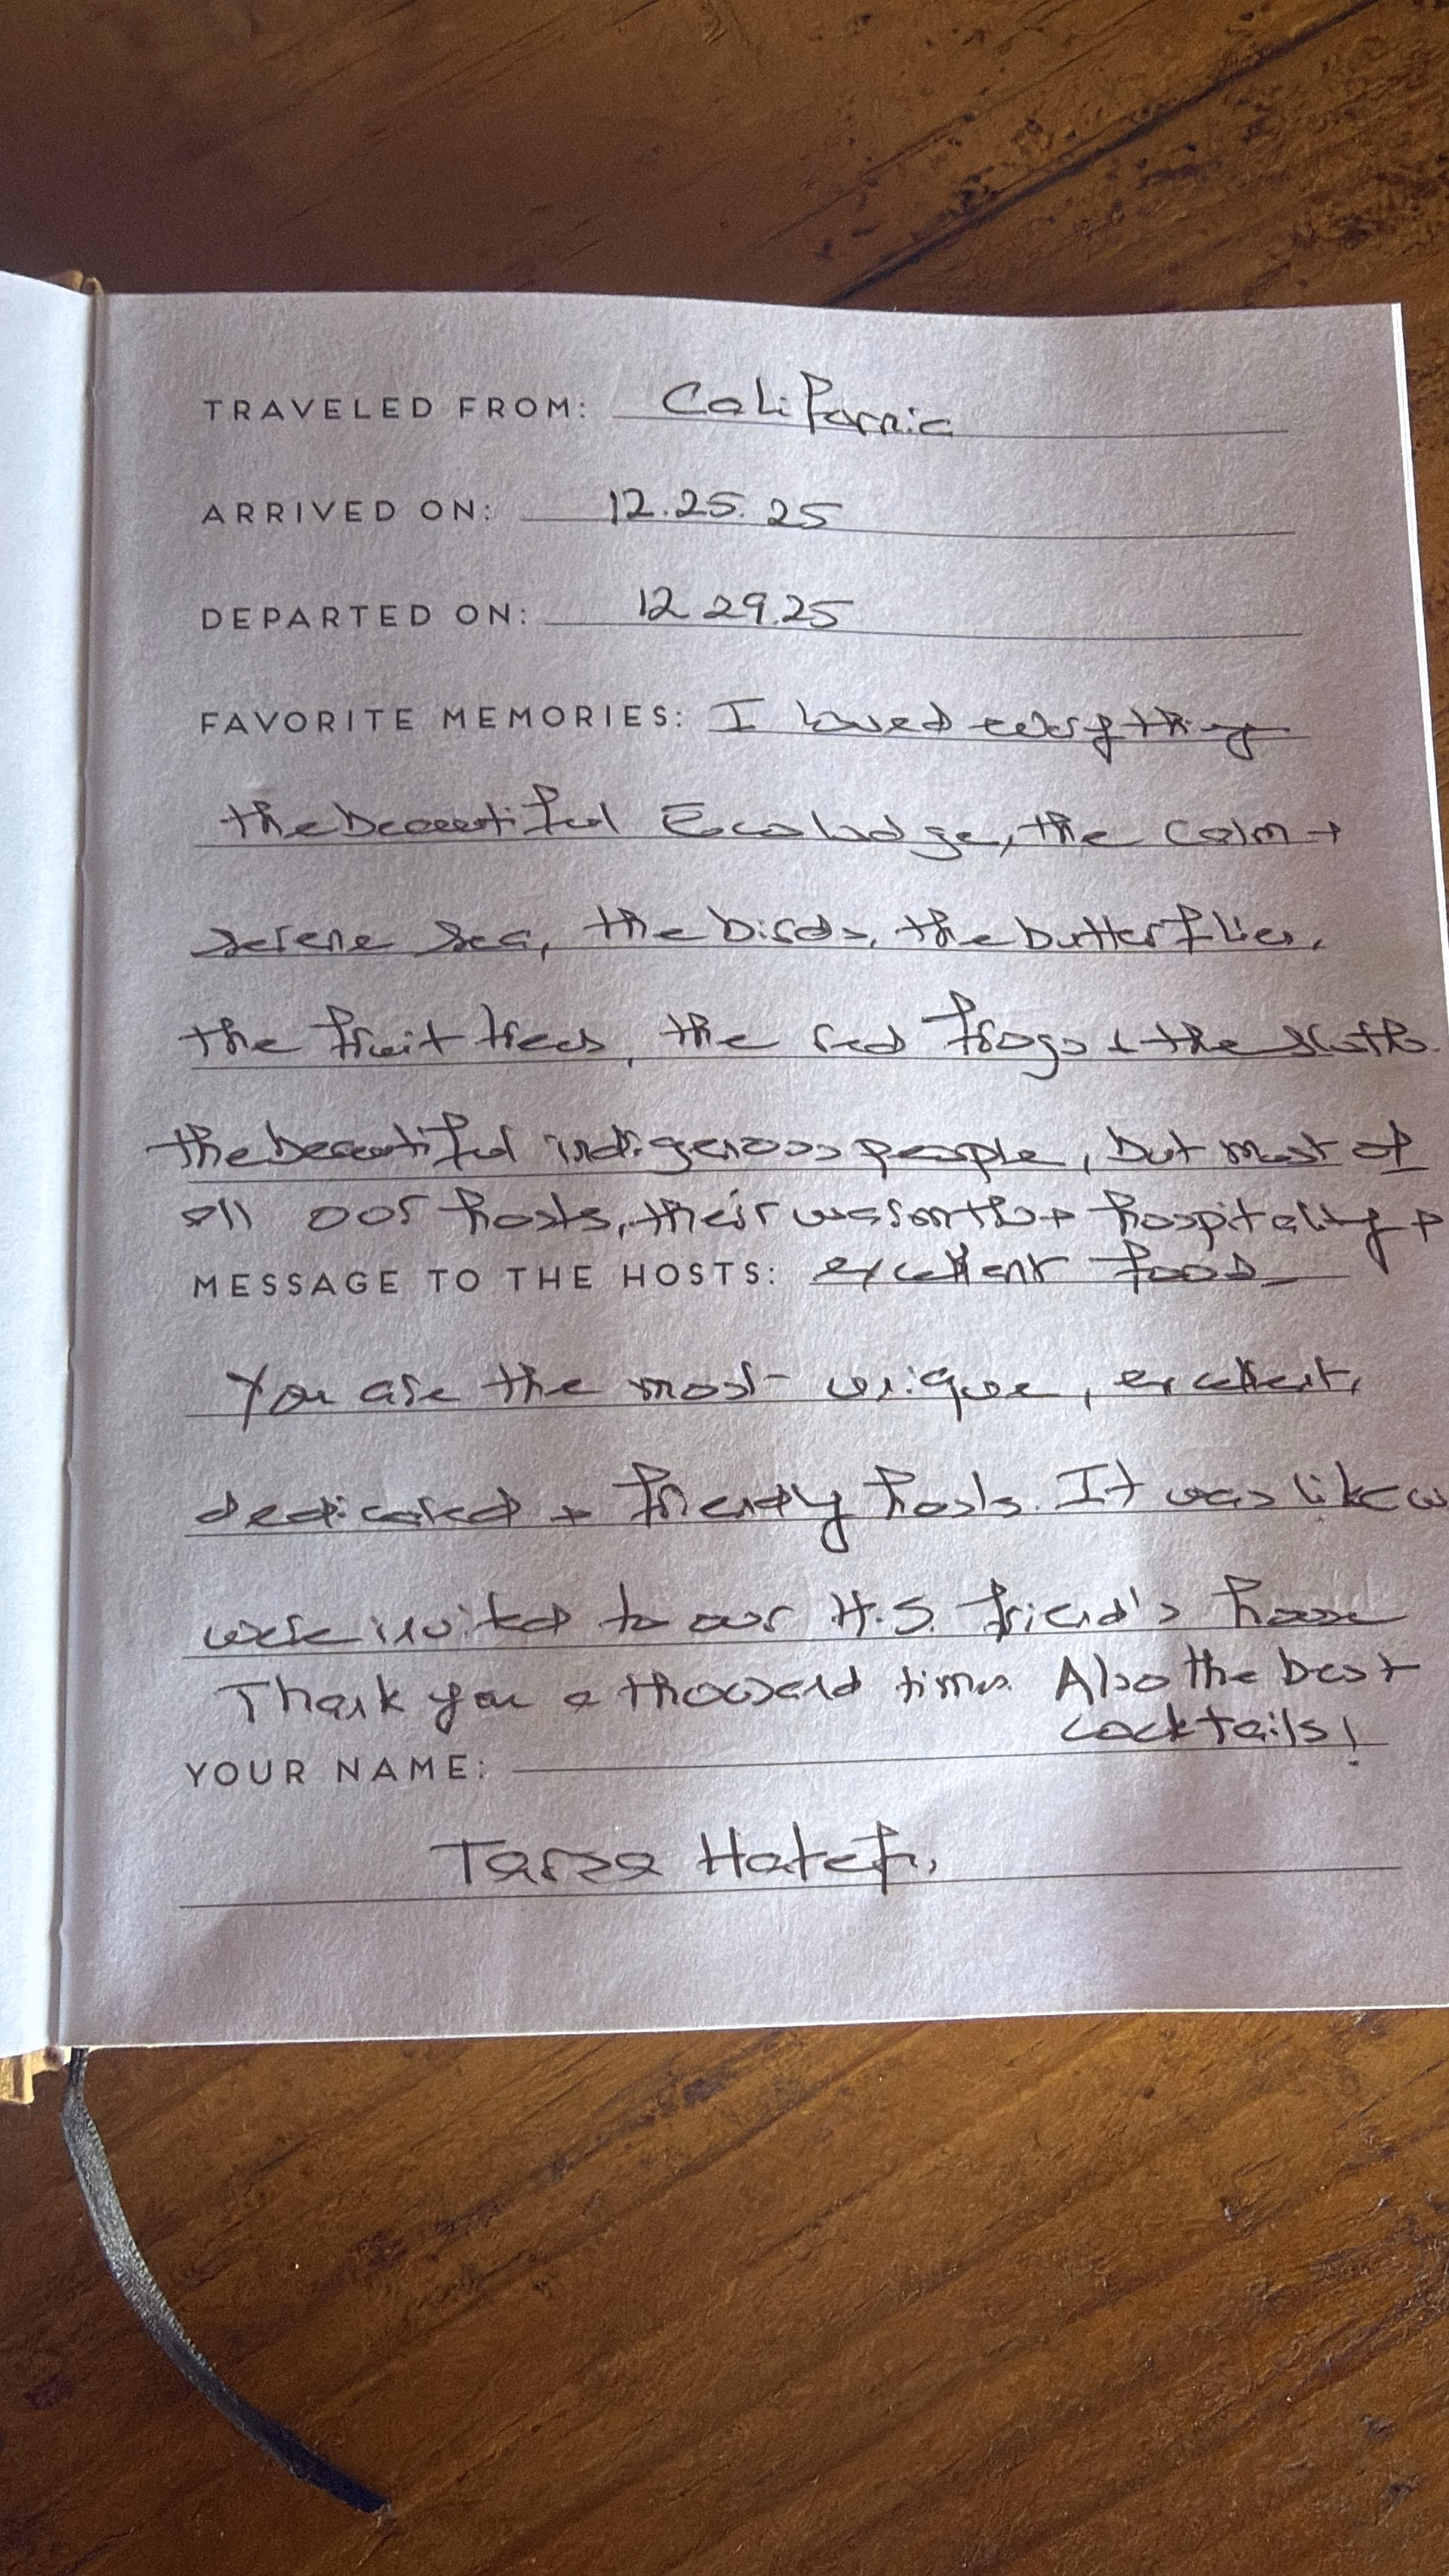 TRAVELED FROM: California
ARRIVED ON: 12.25.25
DEPARTED ON: 12 29.25
FAVORITE MEMORIES: I loved everything
the beautiful Ecolodge, the calm +
serene sea, the birds, the butterflies,
the fruit trees, the red frogs + the sloths.
the beautiful indigenous people, but most of
all our hosts, their warmth + hospitality +
MESSAGE TO THE HOSTS: excellent food
You are the most unique, excellent,
dedicated + friendly hosts. It was like w
were invited to our H.S. friend's house
Thank you a thousand times. Also the best
cocktails!
YOUR NAME:
Tarsa Hatefi,